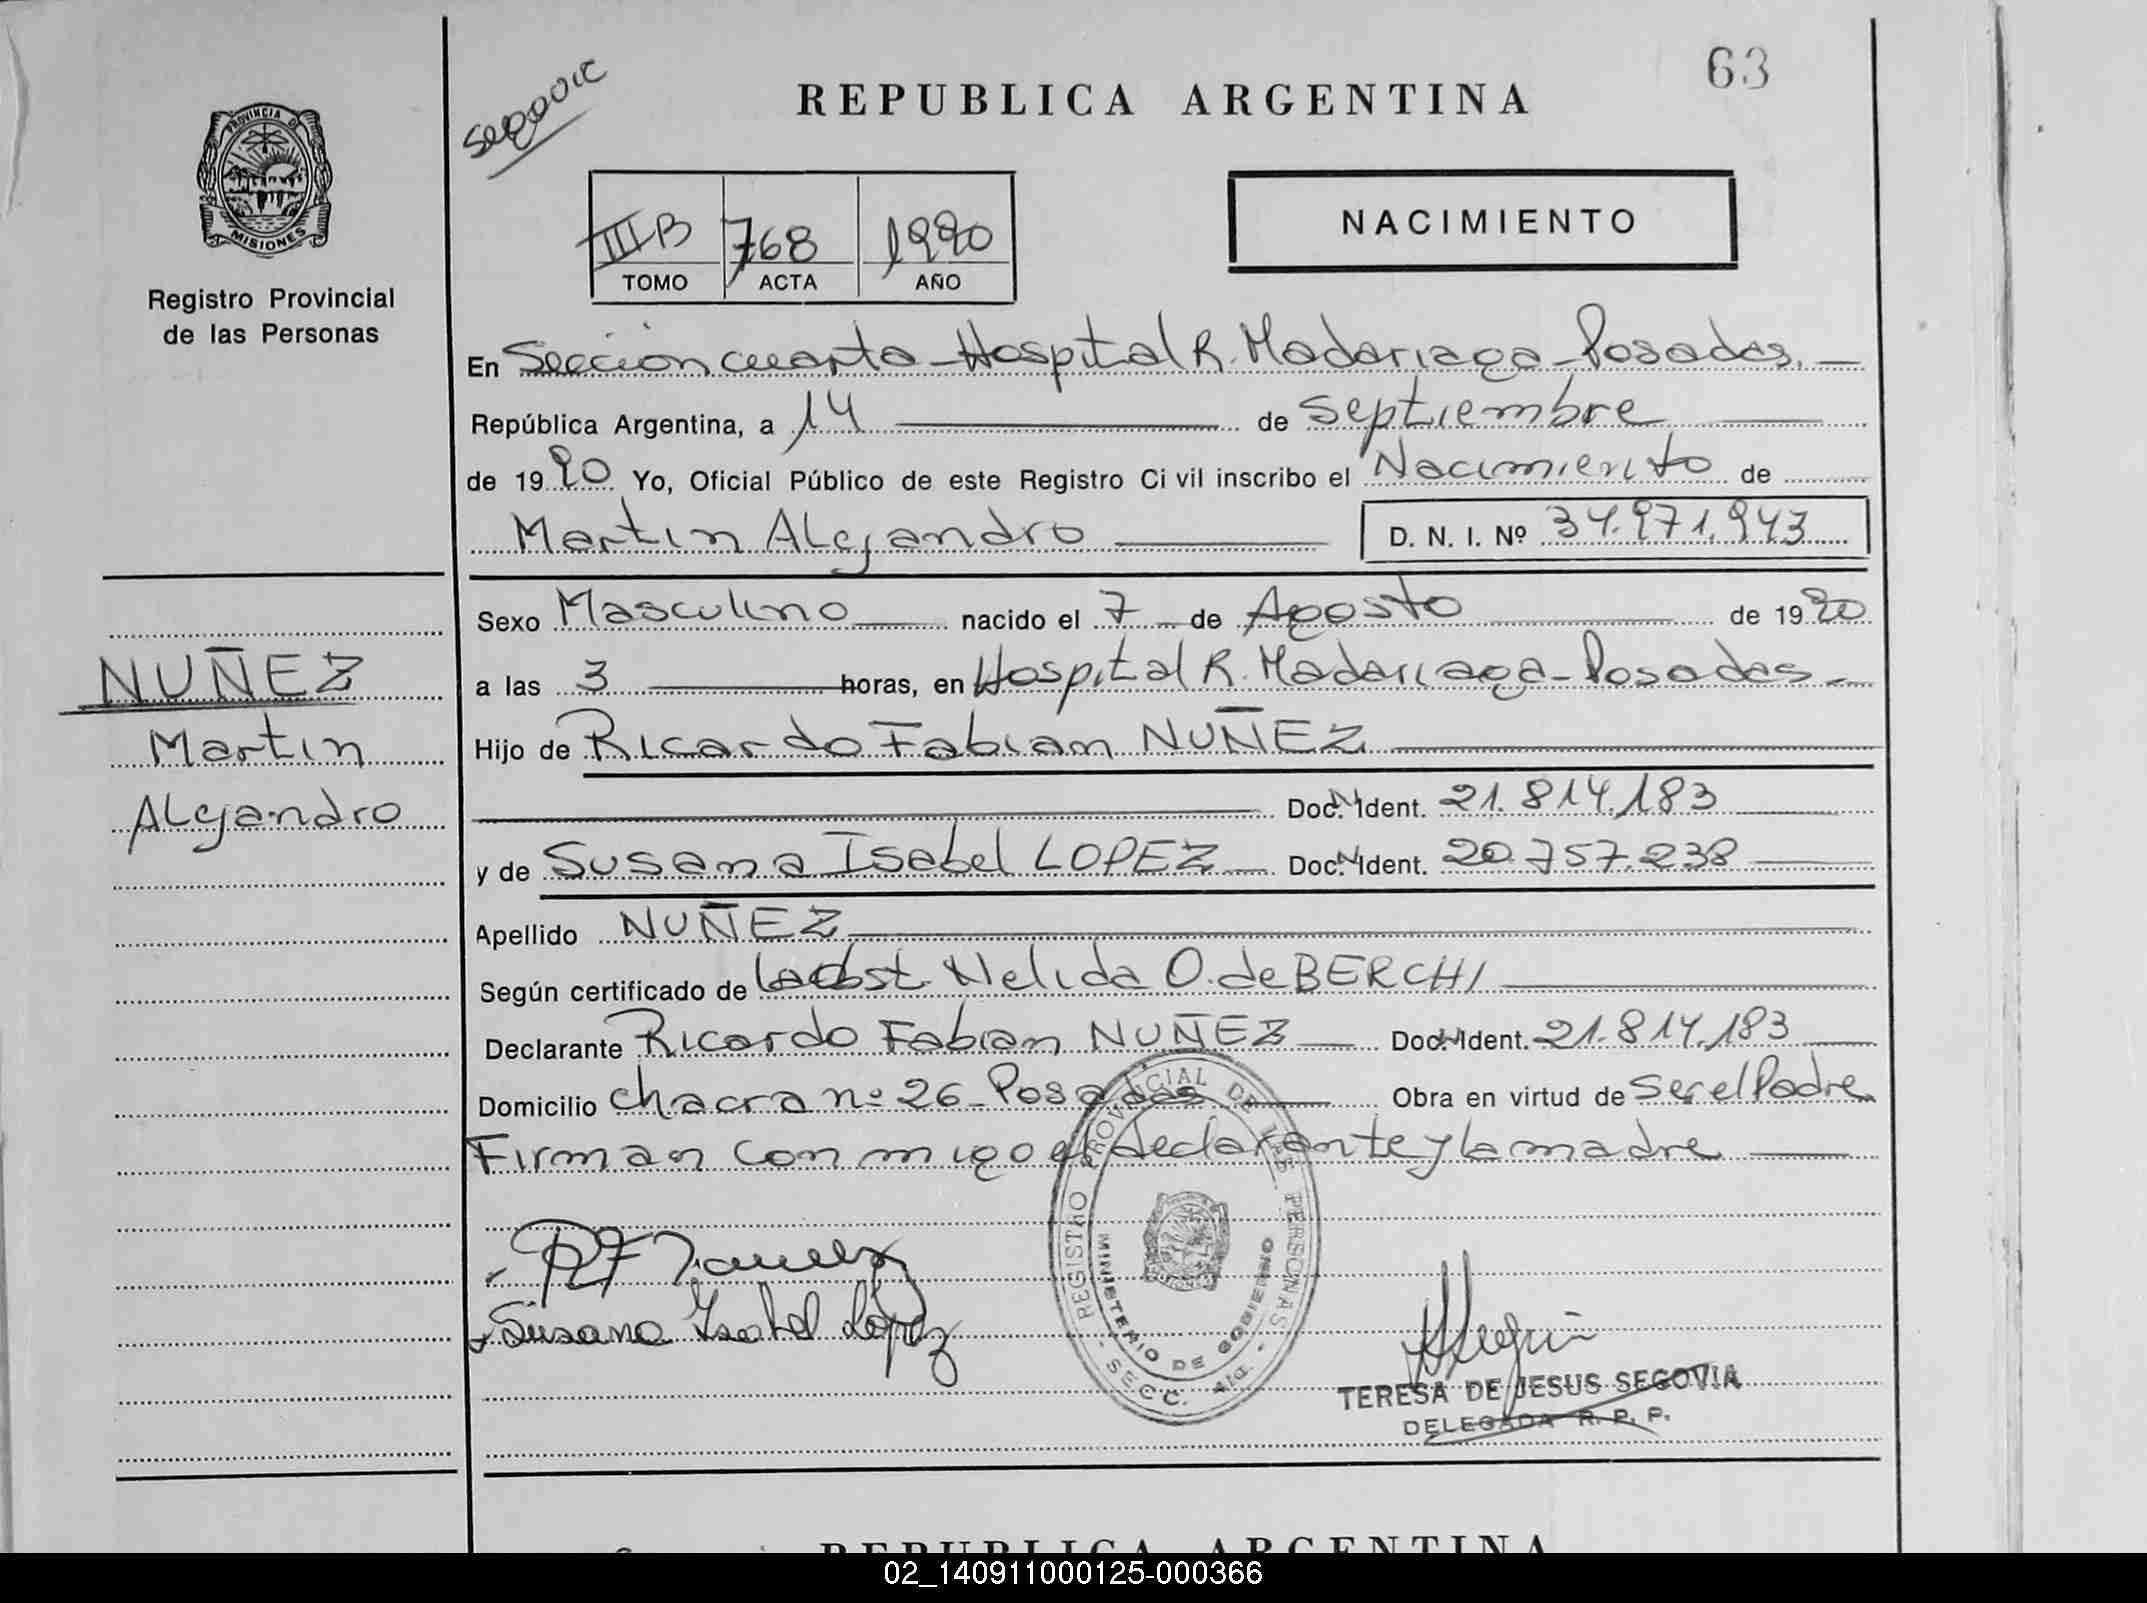 63
REPUBLICA ARGENTINA
PROVINCIA DE
MISIONES
Registro Provincial
de las Personas
III B 768 1990
TOMO ACTA AÑO
NACIMIENTO
En Sección cuarta - Hospital R. Madariaga - Posadas. -
República Argentina, a 14 de Septiembre
de 1990 Yo, Oficial Público de este Registro Ci vil inscribo el Nacimiento de
Martin Alejandro D. N. I. Nº 34.971.943
Sexo Masculino nacido el 7 de Agosto de 1990
a las 3 horas, en Hospital R. Madariaga - Posadas -
Hijo de Ricardo Fabian NUÑEZ
Doc. Ident. 21.814.183
y de Susana Isabel LOPEZ Doc. Ident. 20.757.238
Apellido NUÑEZ
Según certificado de la obst. Nelida O. de BERCHI
Declarante Ricardo Fabian NUÑEZ Doc. Ident. 21.814.183
Domicilio chacra nº 26 - Posadas Obra en virtud de Ser el Padre
Firman conmigo el declarante y la madre
NUÑEZ
Martin
Alejandro
RF Nuñez
Susana Isabel López
REGISTRO PROVINCIAL DE LAS PERSONAS
MINISTERIO DE GOBIERNO
- SECC. 4ta. -
TERESA DE JESUS SEGOVIA
DELEGADA R. P. P.
REPUBLICA ARGENTINA
02_140911000125-000366